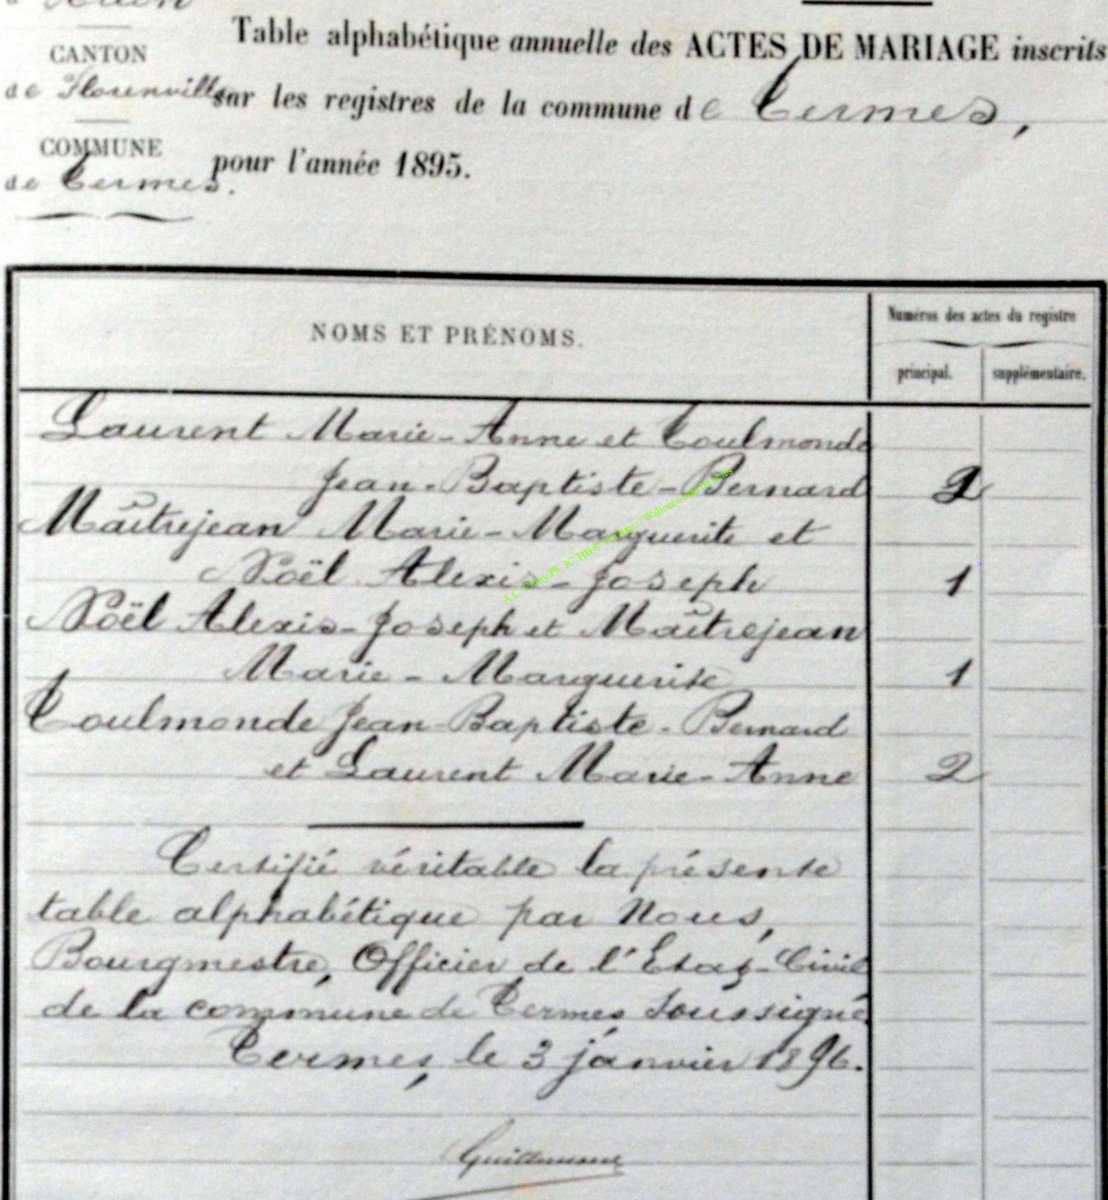 CANTON
de Florenville
COMMUNE
de Termes.
Table alphabétique annuelle des ACTES DE MARIAGE inscrits
sur les registres de la commune de Termes,
pour l'année 1895.
NOMS ET PRÉNOMS.
Numéros des actes du registre
principal. supplémentaire.
Laurent Marie-Anne et Toulmonde
Jean-Baptiste-Bernard 2
Maîtrejean Marie-Marguerite et
Noël Alexis-Joseph 1
Noël Alexis-Joseph et Maîtrejean
Marie-Marguerite 1
Toulmonde Jean-Baptiste-Bernard
et Laurent Marie-Anne 2
Certifié véritable la présente
table alphabétique par Nous,
Bourgmestre, Officier de l'Etat-Civil
de la commune de Termes soussigné
Termes, le 3 janvier 1896.